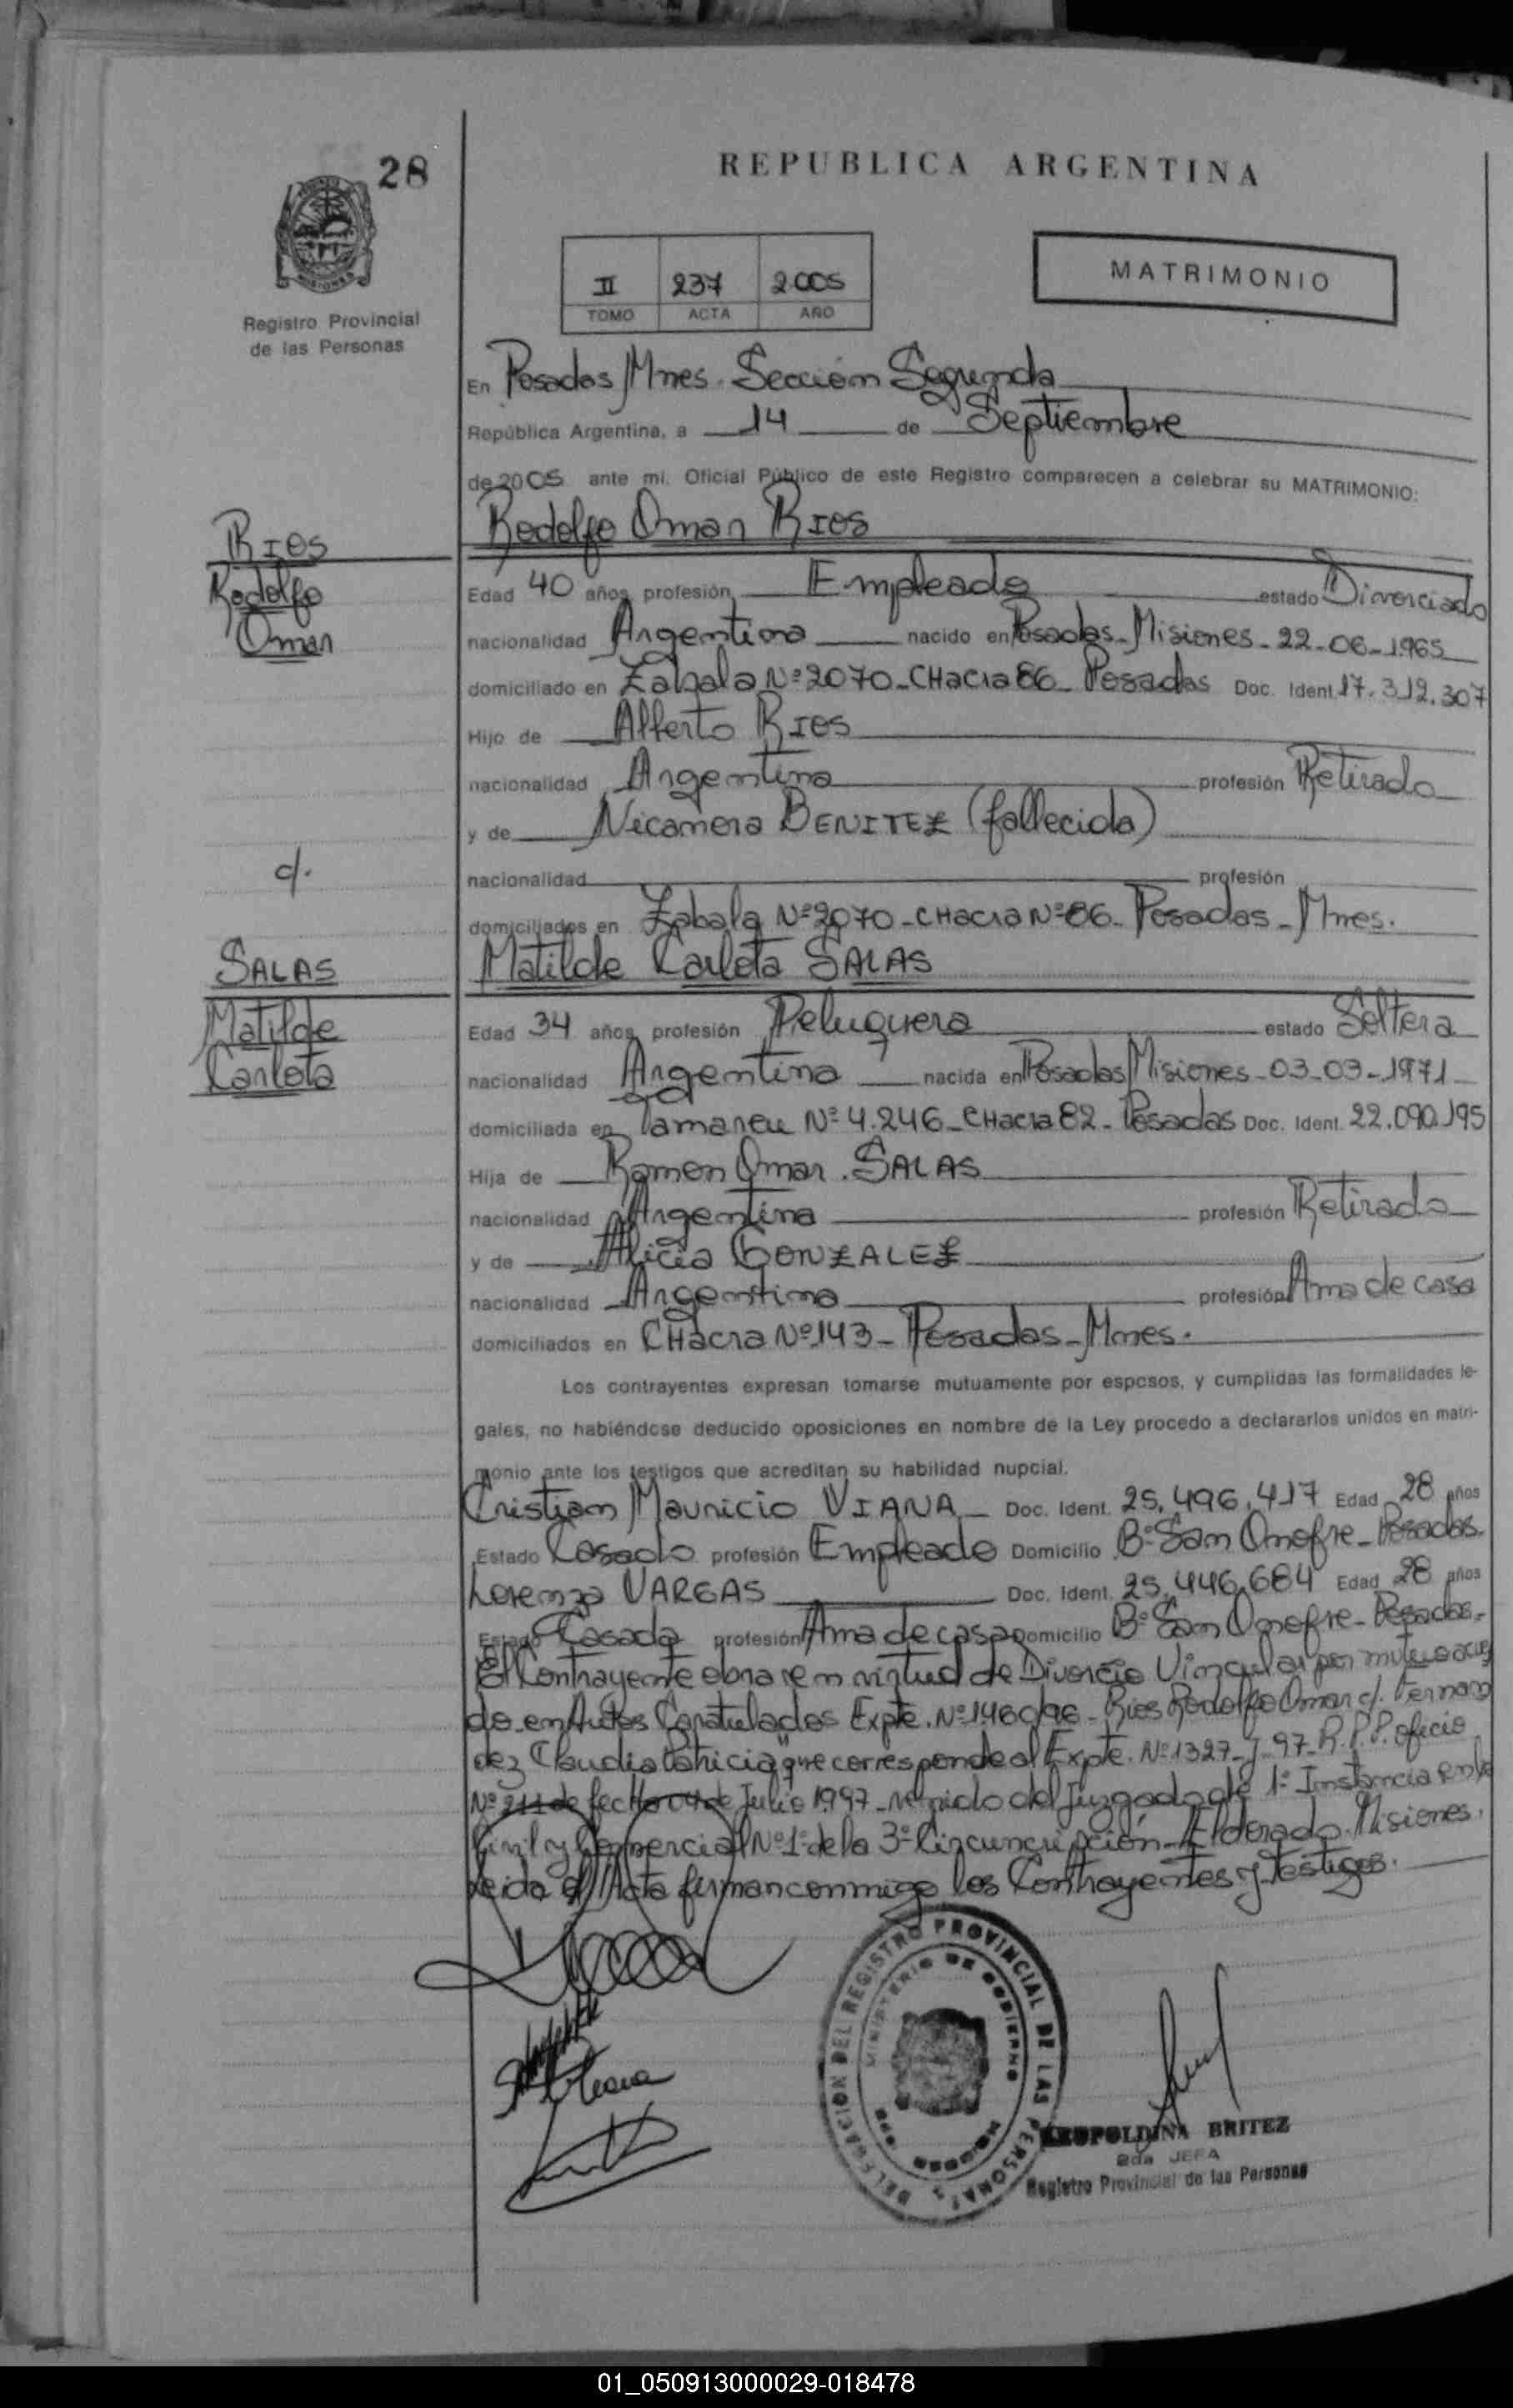 28
REPUBLICA ARGENTINA
II 237 2005
TOMO ACTA AÑO
MATRIMONIO
Registro Provincial
de las Personas
En Posadas Mnes. Sección Segunda
República Argentina, a 14 de Septiembre
de 2005 ante mi. Oficial Público de este Registro comparecen a celebrar su MATRIMONIO:
Rodolfo Omar RIOS
RIOS
Rodolfo
Omar
Edad 40 años profesión Empleado estado Divorciado
nacionalidad Argentina nacido en Posadas-Misiones-22-06-1965
domiciliado en Zabala Nº2070-CHacra 86-Posadas Doc. Ident. 17.312.307
Hijo de Alberto RIOS
nacionalidad Argentina profesión Retirado
y de Nicamera BENITEZ (fallecida)
nacionalidad profesión
c/.
domiciliados en Zabala Nº2070-CHacra Nº86-Posadas-Mnes.
Matilde Carlota SALAS
SALAS
Matilde
Carlota
Edad 34 años profesión Peluquera estado Soltera
nacionalidad Argentina nacida en Posadas Misiones-03-03-1971
domiciliada en Tamareu Nº4.246-CHacra 82-Posadas Doc. Ident. 22.090.195
Hija de Ramon Omar. SALAS
nacionalidad Argentina profesión Retirado
y de Alicia GONZALEZ
nacionalidad Argentina profesión Ama de casa
domiciliados en CHacra Nº143-Posadas-Mnes.
Los contrayentes expresan tomarse mutuamente por esposos, y cumplidas las formalidades le-
gales, no habiéndose deducido oposiciones en nombre de la Ley procedo a declararlos unidos en matri-
monio ante los testigos que acreditan su habilidad nupcial.
Cristian Mauricio VIANA Doc. Ident. 25.496.417 Edad 28 años
Estado Casado profesión Empleado Domicilio Bº San Onofre-Posadas.
Lorenza VARGAS Doc. Ident. 25.446.684 Edad 28 años
Estado Casada profesión Ama de casa Domicilio Bº San Onofre-Posadas.-
El Contrayente obra en virtud de Divorcio Vincular por mutuo acuer
do en Autos Caratulados Expte. Nº1460/96-Rios Rodolfo Omar c/. Fernan
dez Claudia Patricia" que corresponde al Expte. Nº1327-J-97-R.P.P. oficio
Nº 211 de fecha 04 de Julio 1997-venido del Juzgado de 1º Instancia en lo
Civil y Comercial Nº1º de la 3º Circuncripción-Eldorado-Misiones.
Leida el Acta firman conmigo los Contrayentes y Testigos.
DELEGACION DEL REGISTRO PROVINCIAL DE LAS PERSONAS
MINISTERIO DE GOBIERNO
LEOPOLDINA BRITEZ
2da JEFA
Registro Provincial de las Personas
01_050913000029-018478